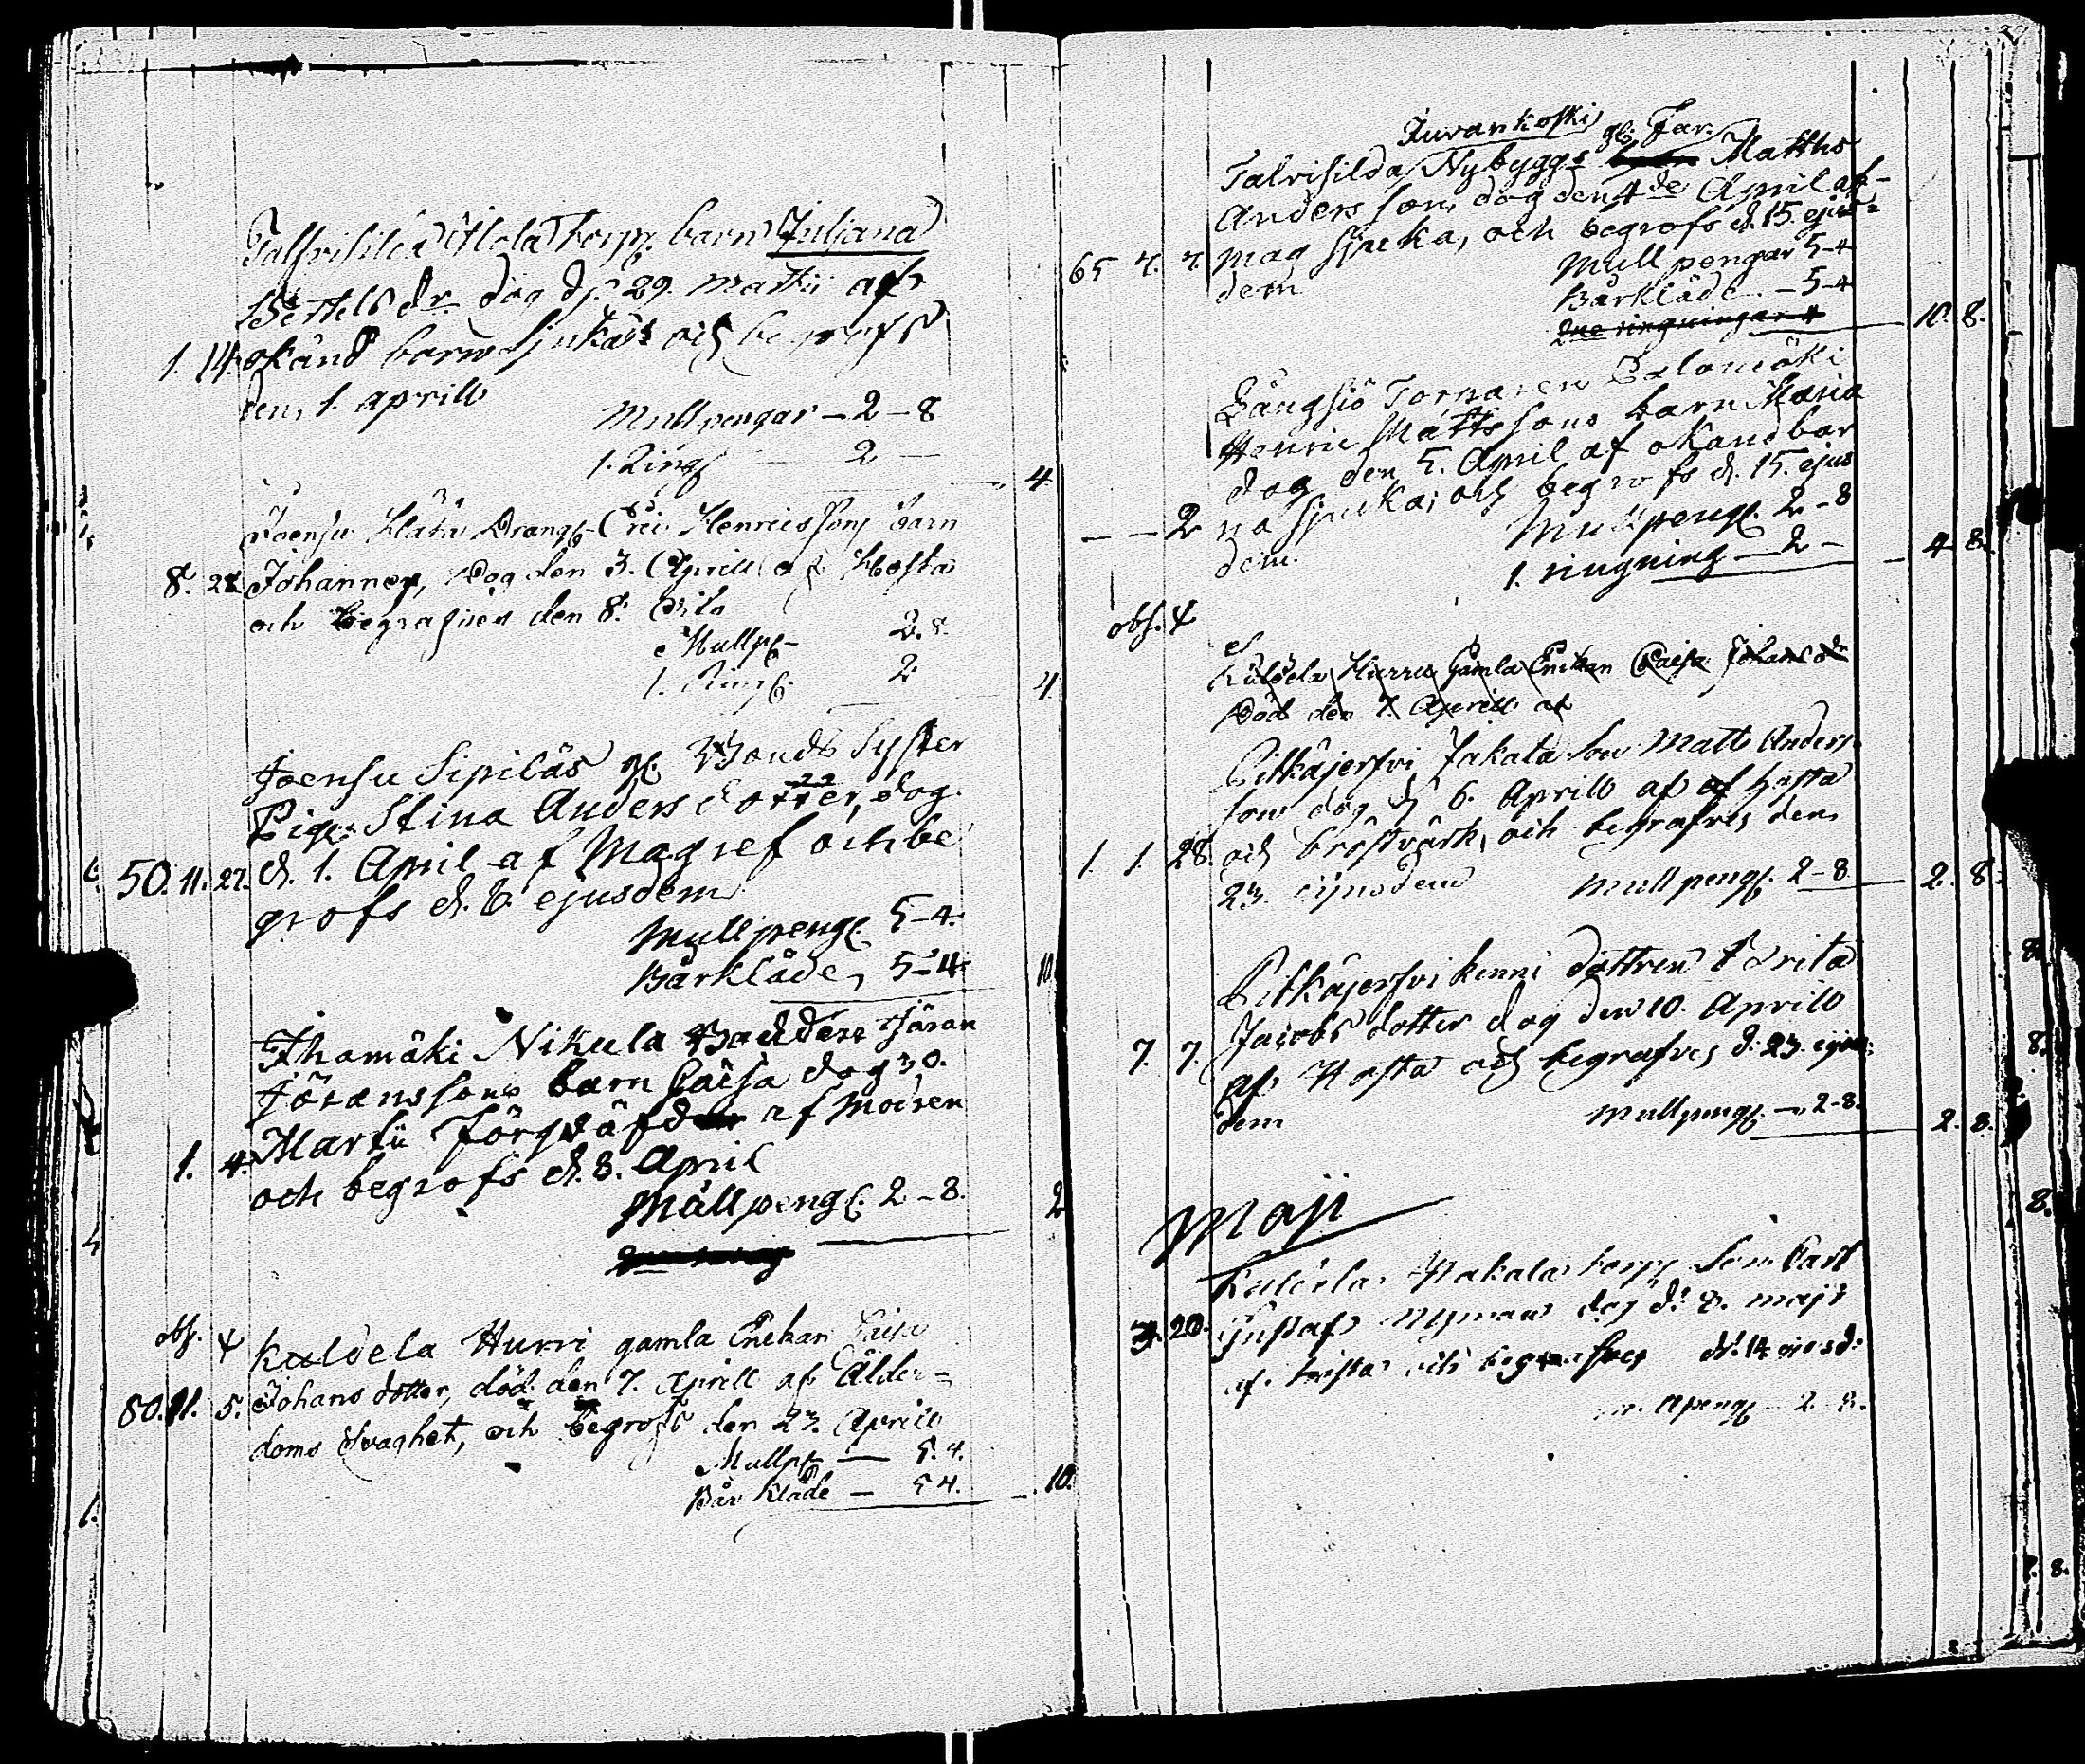 Juliana
dr. dog d. 29. martii af
1. 14. okänd barn sjukdt och begrofs
den 1. aprill
Mullpengar - 2 - 8
1. Ring 2 -
4.
Joensu Drang Henricsons barn
8. Johannes, dog den 3. Aprill af Hosta
och begrafves den 8. dito
Mullp. 2. 8.
1. Ring. 2
4.
Joensu Sipiläs gl. Bonds Syster
Pig. Stina Anders dotter, dog
50. 11. 27. d. 1. April af Magref och be
grofs d. 8. ejusdem
Mullpeng. 5-4.
Bårkläde, 5-4
10
Ihamäki Nikula
Jöranssons barn Caisa dog 30.
1. 4. Martii af
och begrofs d. 8. April
Mullpeng. 2-8.
2
obs. Kuldela Hurri gamla Enekan Caisa
80. 11. 5. Johans dotter, död den 7. Aprill af Ålder-
doms Svaghet, och begrofs den 23. Aprill
Mullp. - 5. 4.
Bår Kläde - 5 4.
10.
Juvankoski gl. Far
Talvisilda Nybyggs Matths
Anders son, dog den 4de April af
65 7. 7. mag sjucka, och begrofs d. 15. ejus=
dem
Mull pengar 5-4
Bårkläde - 5-4
10. 8.
Långsiö Torparen Salomäki
Henric Mattssons barn Maria
dog den 5. April af okand bar
- - 2 na sjucka; och begrofs d. 15. ejus
dem.
Mullpeng. 2-8
1. ringning - 2 -
4. 8.
obs.
Kuldela Hurris Gamla Enekan Caisa Johansdr
Död den 7 Aprill af
Pitkäjerfvi Jakala Son Matts Anders
son dog d. 6. Aprill af hosta
1. 1. 28. och bröstvärk, och begrafves den
23. ejusdem Mullpeng. 2-8
2. 8.
Pitkäjerfvi dottren Brita
Jacobs dotter dog den 10. Aprill
7. 7. af Hosta och begrafves d. 23. ejus
dem
Mullpeng. - 2-8.
2. 8.
Maji
Kuldela torp. Son Carl
20. Gustaf Nyman dog d. 8. maji
af hosta och begrafves d. 14 ejusd:
peng. 2. 8.